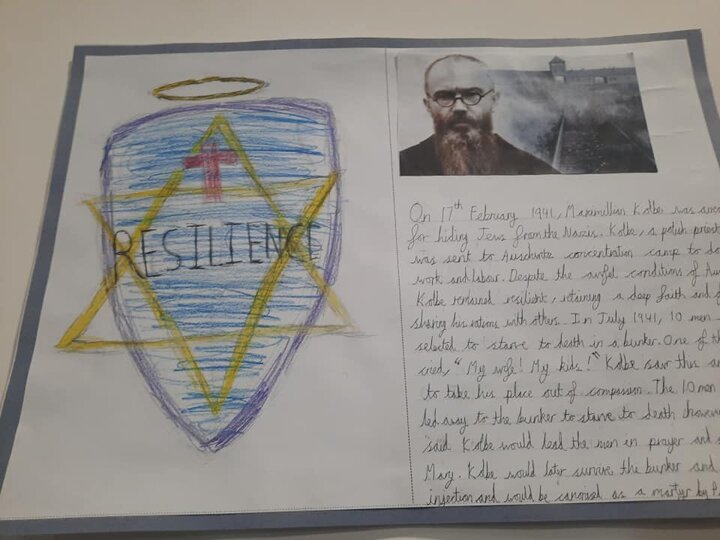 RESILIENCE
On 17th February 1941, Maximillian Kolbe was
for hiding Jews from the Nazis. Kolbe, a polish priest
was sent to Auschwitz concentration camp to do
work and labour. Despite the awful conditions of
Kolbe remained resilient, retaining a deep faith and
sharing his rations with others. In July 1941, 10 men
selected to starve to death in a bunker. One of
cried, "My wife! My kids!" Kolbe saw this
to take his place out of compassion. The 10 men
led away to the bunker to starve to death
said Kolbe would lead the men in prayer and
Mary. Kolbe would later survive the bunker and
injection and would be canonised as a martyr by